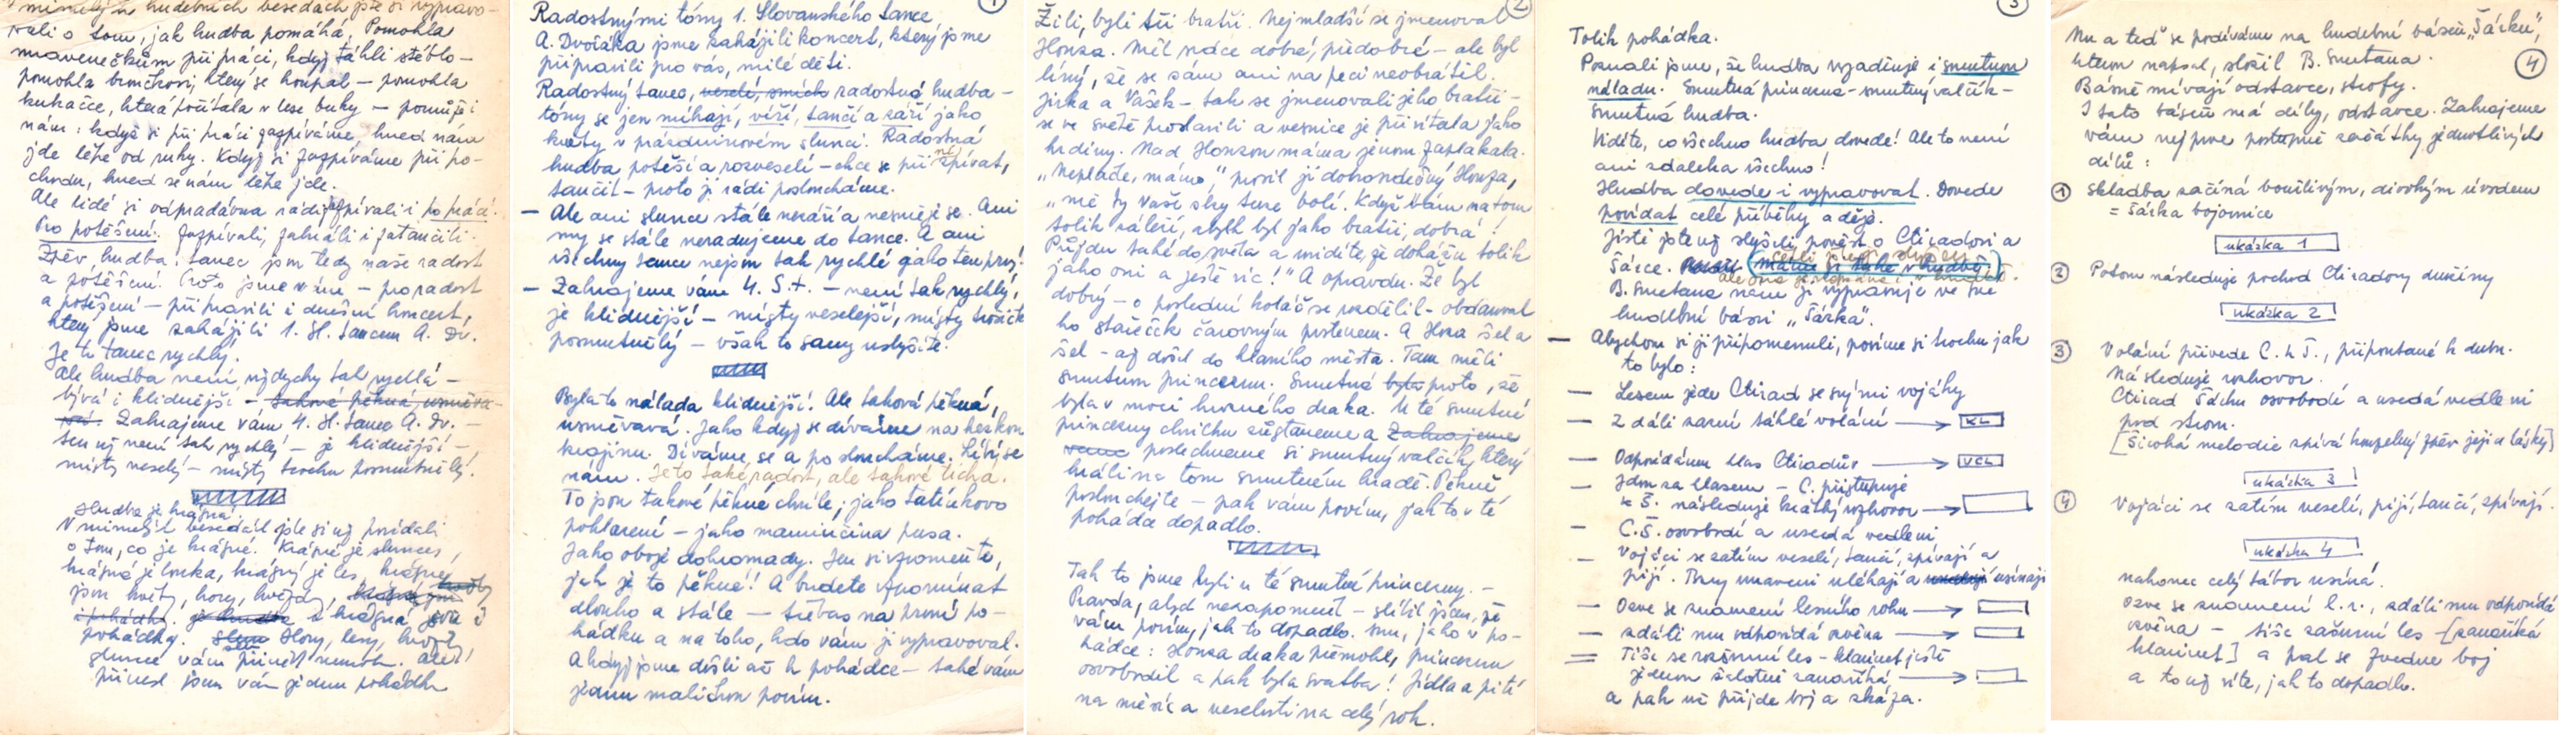 minulých hudebních besedách jste si vypravo-
vali o tom, jak hudba pomáhá. Pomohla
mravenečkům při práci, když táhli stéblo –
pomohla broučkovi, který se houpal – pomohla
kukačce, která počítala v lese buky – pomůže i
nám: když si při práci zazpíváme, hned nám
jde lépe od ruky. Když si zazpíváme při po-
chodu, hned se nám lépe jde.
Ale lidé si odpradávna rádi zpívali i po práci.
Pro potěšení. Zazpívali, zahráli i zatančili.
Zpěv, hudba, tanec jsou tedy naše radost
a potěšení. Proto jsme – pro radost
a potěšení – připravili i dnešní koncert,
který jsme zahájili 1. sl. tancem A. Dv.
Je to tanec rychlý.
Ale hudba není vždycky tak rychlá –
bývá i klidnější – taková pěkná, usměva-
vá. Zahrajeme vám 4. sl. tanec A. Dv. –
ten už není tak rychlý – je klidnější –
místy veselý – místy trochu posmutnělý.
Hudba je krásná!
V minulých besedách jste si už povídali
o tom, co je krásné. Krásné je slunce,
krásná je louka, krásný je les, krásné
jsou květy, hory, hvězdy,
i pohádky. je hudba i krásná jsou i
pohádky. Hory, lesy, hvězdy
slunce vám přinést nemohu. Ale
přinesl jsem vám jednu pohádku
1
Radostnými tóny 1. Slovanského tance
A. Dvořáka jsme zahájili koncert, který jsme
připravili pro vás, milé děti.
Radostný tanec, veselí, smích radostná hudba –
tóny se jen míhají, víří, tančí a září jako
květy v prázdninovém slunci. Radostná
hudba potěší a rozveselí – chce se při ní zpívat,
tančit – proto ji rádi posloucháme.
– Ale ani slunce stále nezáří a nesměje se. Ani
my se stále neradujeme do tance. A ani
všechny tance nejsou tak rychlé jako ten prvý.
– Zahrajeme vám 4. S.t. – není tak rychlý,
je klidnější – místy veselejší, místy trošičk
posmutnělý – však to sami uslyšíte.
Byla to nálada klidnější! Ale taková pěkná,
usměvavá. Jako když se díváme na hezkou
krajinu. Díváme se a posloucháme. Líbí se
nám. Je to také radost, ale taková tichá.
To jsou takové pěkné chvíle; jako tatínkovo
pohlazení – jako maminčina pusa.
Jako oboje dohromady. Jen si vzpomeňte,
jak je to pěkné! A budete vzpomínat
dlouho a stále – třebas na první po-
hádku a na toho, kdo vám ji vypravoval.
A když jsme došli až k pohádce – také vám
jednu maličkou povím.
2
Žili, byli tři bratři. Nejmladší se jmenoval
Honza. Měl srdce dobré, předobré – ale byl
líný, že se sám ani na peci neobrátil.
Jirka a Vašek – tak se jmenovali jeho bratři –
se ve světě proslavili a vesnice je přivítala jako
hrdiny. Nad Honzou máma jenom zaplakala.
„Neplače, mámo," prosil ji dobrosrdečný Honza,
„mě ty Vaše slzy tuze bolí. Když Vám na tom
tolik záleží, abych byl jako bratři, dobrá!
Půjdu také do světa a uvidíte, že dokážu tolik
jako oni a ještě víc!" A opravdu. Že byl
dobrý – o poslední koláč se rozdělil – obdaroval
ho stařeček čarovným prstenem. A Honza šel a
šel – až došel do hlavního města. Tam měli
smutnou princeznu. Smutná byla proto, že
byla v moci hrozného draka. U té smutné
princezny chvilku zůstaneme a Zahrajeme
vám poslechneme si smutný valčík, který
hráli na tom smutném hradě. Pěkně
poslouchejte – pak vám povím, jak to v té
pohádce dopadlo.
Tak to jsme byli u té smutné princezny. –
Pravda, abych nezapomněl – slíbil jsem, že
vám povím, jak to dopadlo. Inu, jako v po-
hádce: Honza draka přemohl, princeznu
osvobodil a pak byla svatba! Jídla a pití
na měsíc a veselosti na celý rok.
3
Tolik pohádka.
Poznali jsme, že hudba vyjadřuje i smutnou
náladu. Smutná princezna – smutný valčík –
smutná hudba.
Vidíte, co všechno hudba dovede! Ale to není
ani zdaleka všechno!
Hudba dovede i vypravovat. Dovede
povídat celé příběhy a děje.
Jistě jste už slyšeli pověst o Ctiradovi a
Šárce. máme ji také v hudbě.
B. Smetana nám ji vypravuje ve své
hudební básni „Šárka".
– Abychom si ji připomenuli, povíme si trochu jak
to bylo:
– Lesem jede Ctirad se svými vojáky
– Z dáli zazní táhlé volání → KL
– Odpovídá mu hlas Ctiradův → VCL
– Jdou za hlasem – C. přistupuje
k Š. následuje krátký rozhovor →
– C. Š. osvobodí a usedá vedle ní
– Vojáci se zatím veselí, tančí, zpívají a
pijí. Brzy unaveni uléhají a usínají
– Ozve se znamení lesního rohu →
– zdáli mu odpovídá ozvěna →
= Tiše se rozšumí les – klarinet ještě
jednou žalostně zanaříká →
a pak už přijde boj a zkáza.
4
Nu a teď se podíváme na hudební báseň „Šárku",
kterou napsal, složil B. Smetana.
Básně mívají odstavce, strofy.
I tato báseň má díly, odstavce. Zahrajeme
vám nejprve postupně začátky jednotlivých
dílů:
1 Skladba začíná bouřlivým, divokým úvodem
= Šárka bojovnice
ukázka 1
2 Potom následuje pochod Ctiradovy družiny
ukázka 2
3 Volání přivede C. k Š., připoutané k dubu.
Následuje rozhovor.
Ctirad Šárku osvobodí a usedá vedle ní
pod strom.
[Široká melodie zpívá houpelný zpěv její a lásky]
ukázka 3
4 Vojáci se zatím veselí, pijí, tančí, zpívají.
ukázka 4
nakonec celý tábor usíná.
Ozve se znamení l.r., zdáli mu odpovídá
ozvěna – tiše zašumí les – [zanaříká
klarinet] a pak se zvedne boj
a to už víte, jak to dopadlo.